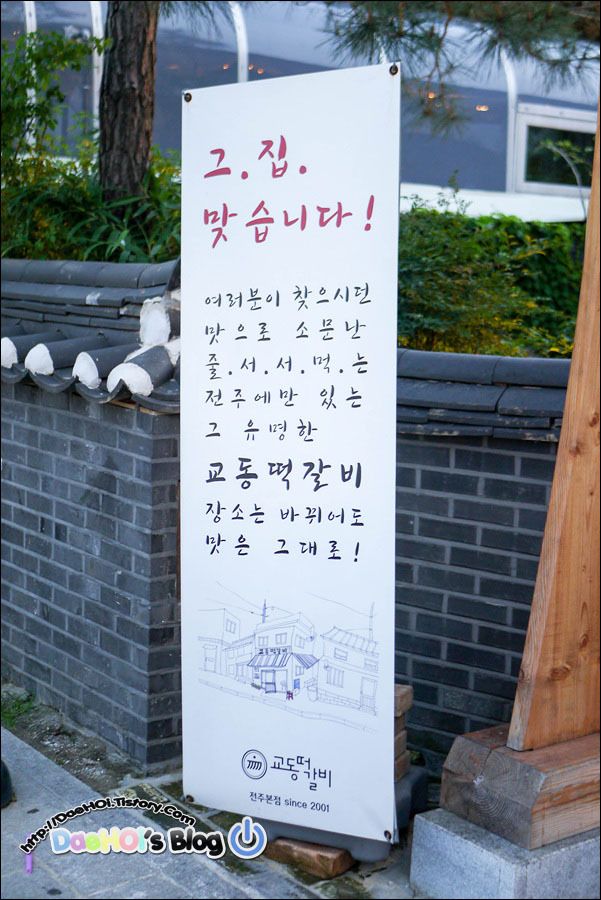 그.집.
맞습니다!
여러분이 찾으시던
맛으로 소문난
줄.서.서.먹.는
전주에만 있는
그 유명한
교동떡갈비
장소는 바뀌어도
맛은 그대로!
교동떡갈비
교동떡
갈비
전주본점 since 2001
http://DaeHOi.Tistory.Com
DaeHOi's Blog